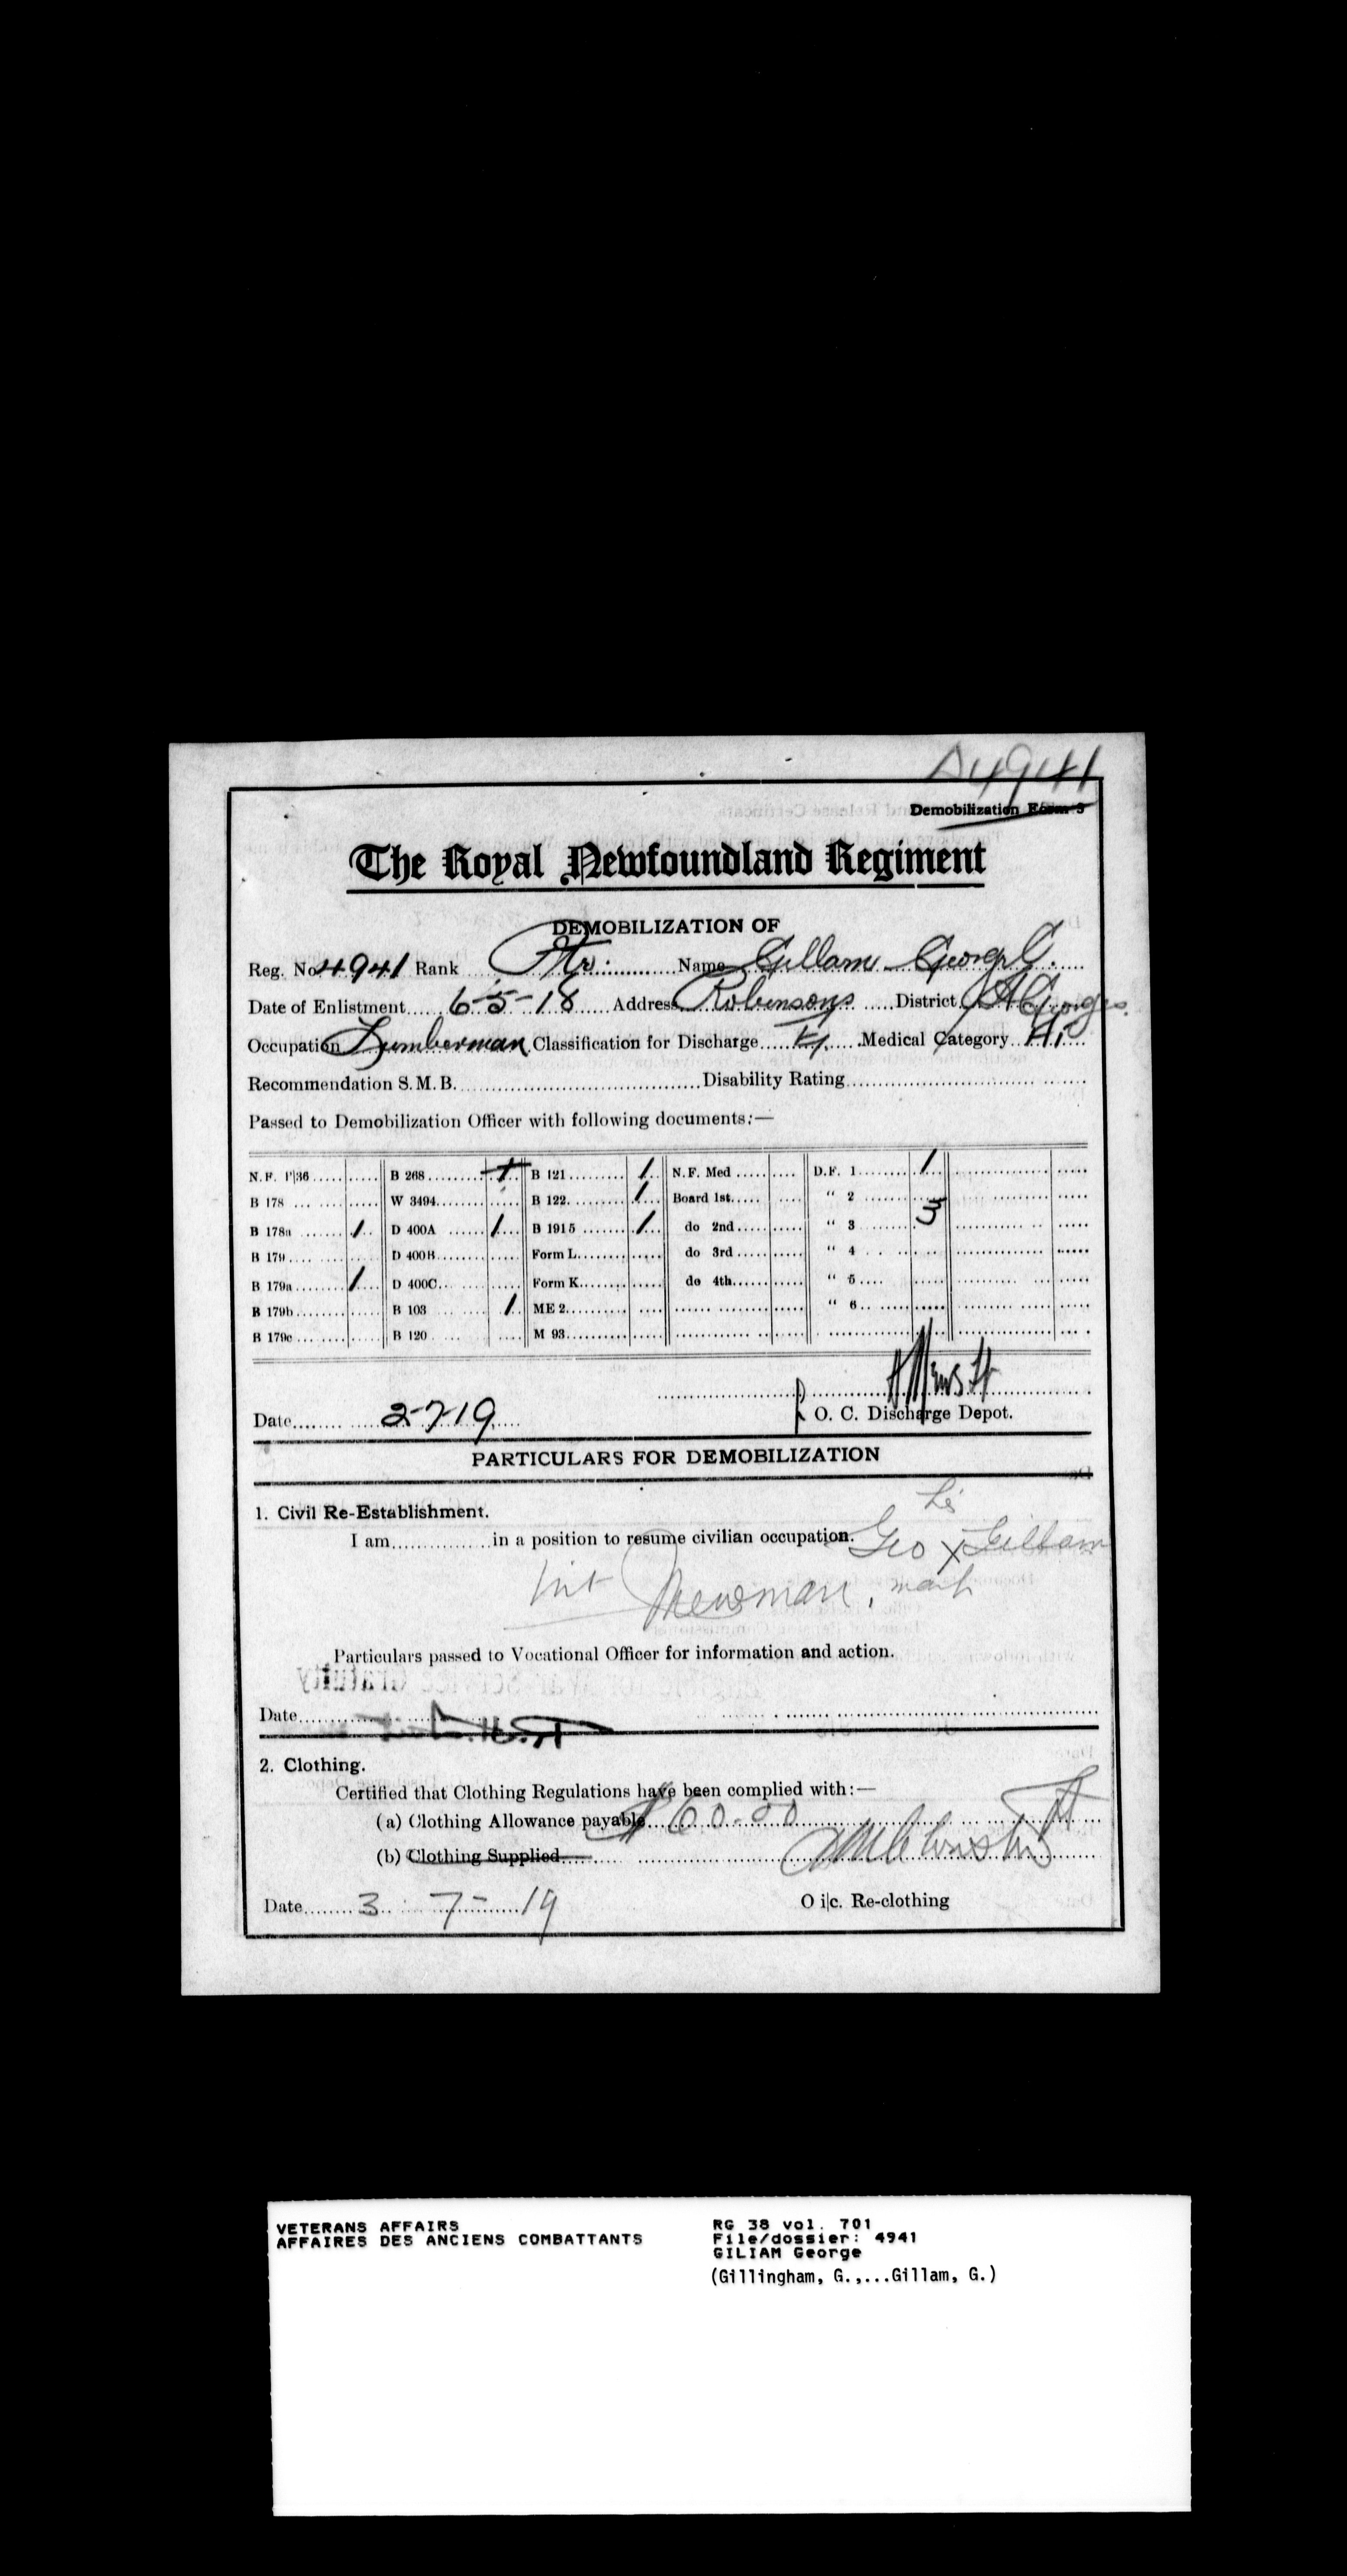 4941
Demobilization Form 3
The Royal Newfoundland Regiment
DEMOBILIZATION OF
Reg. No. 4941 Rank Pte. Name Gillam George C.
Date of Enlistment 6-5-18 Address Robinsons District St Georges.
Occupation Lumberman Classification for Discharge Medical Category A1
Recommendation S. M. B. Disability Rating
Passed to Demobilization Officer with following documents:—
N.F. P|36 B 268 1 B 121 1 N.F. Med D.F. 1 1
B 178 W 3494 B 122 1 Board 1st “ 2
B 178a 1 D 400A 1 B 1915 1 do 2nd “ 3 3
B 179 D 400B Form L do 3rd “ 4
B 179a 1 D 400C Form K do 4th “ 5
B 179b B 103 1 ME 2 “ 6
B 179c B 120 M 93
Date 2-7-19 O. C. Discharge Depot.
PARTICULARS FOR DEMOBILIZATION
1. Civil Re-Establishment.
his
I am in a position to resume civilian occupation. Geo X Gillam
Wit Newman. mark
Particulars passed to Vocational Officer for information and action.
Date
2. Clothing.
Certified that Clothing Regulations have been complied with:—
(a) Clothing Allowance payable $60.00
(b) Clothing Supplied
Date 3 7 - 19 O i|c. Re-clothing
VETERANS AFFAIRS RG 38 vol. 701
AFFAIRES DES ANCIENS COMBATTANTS File/dossier: 4941
GILIAM George
(Gillingham, G.,...Gillam, G.)